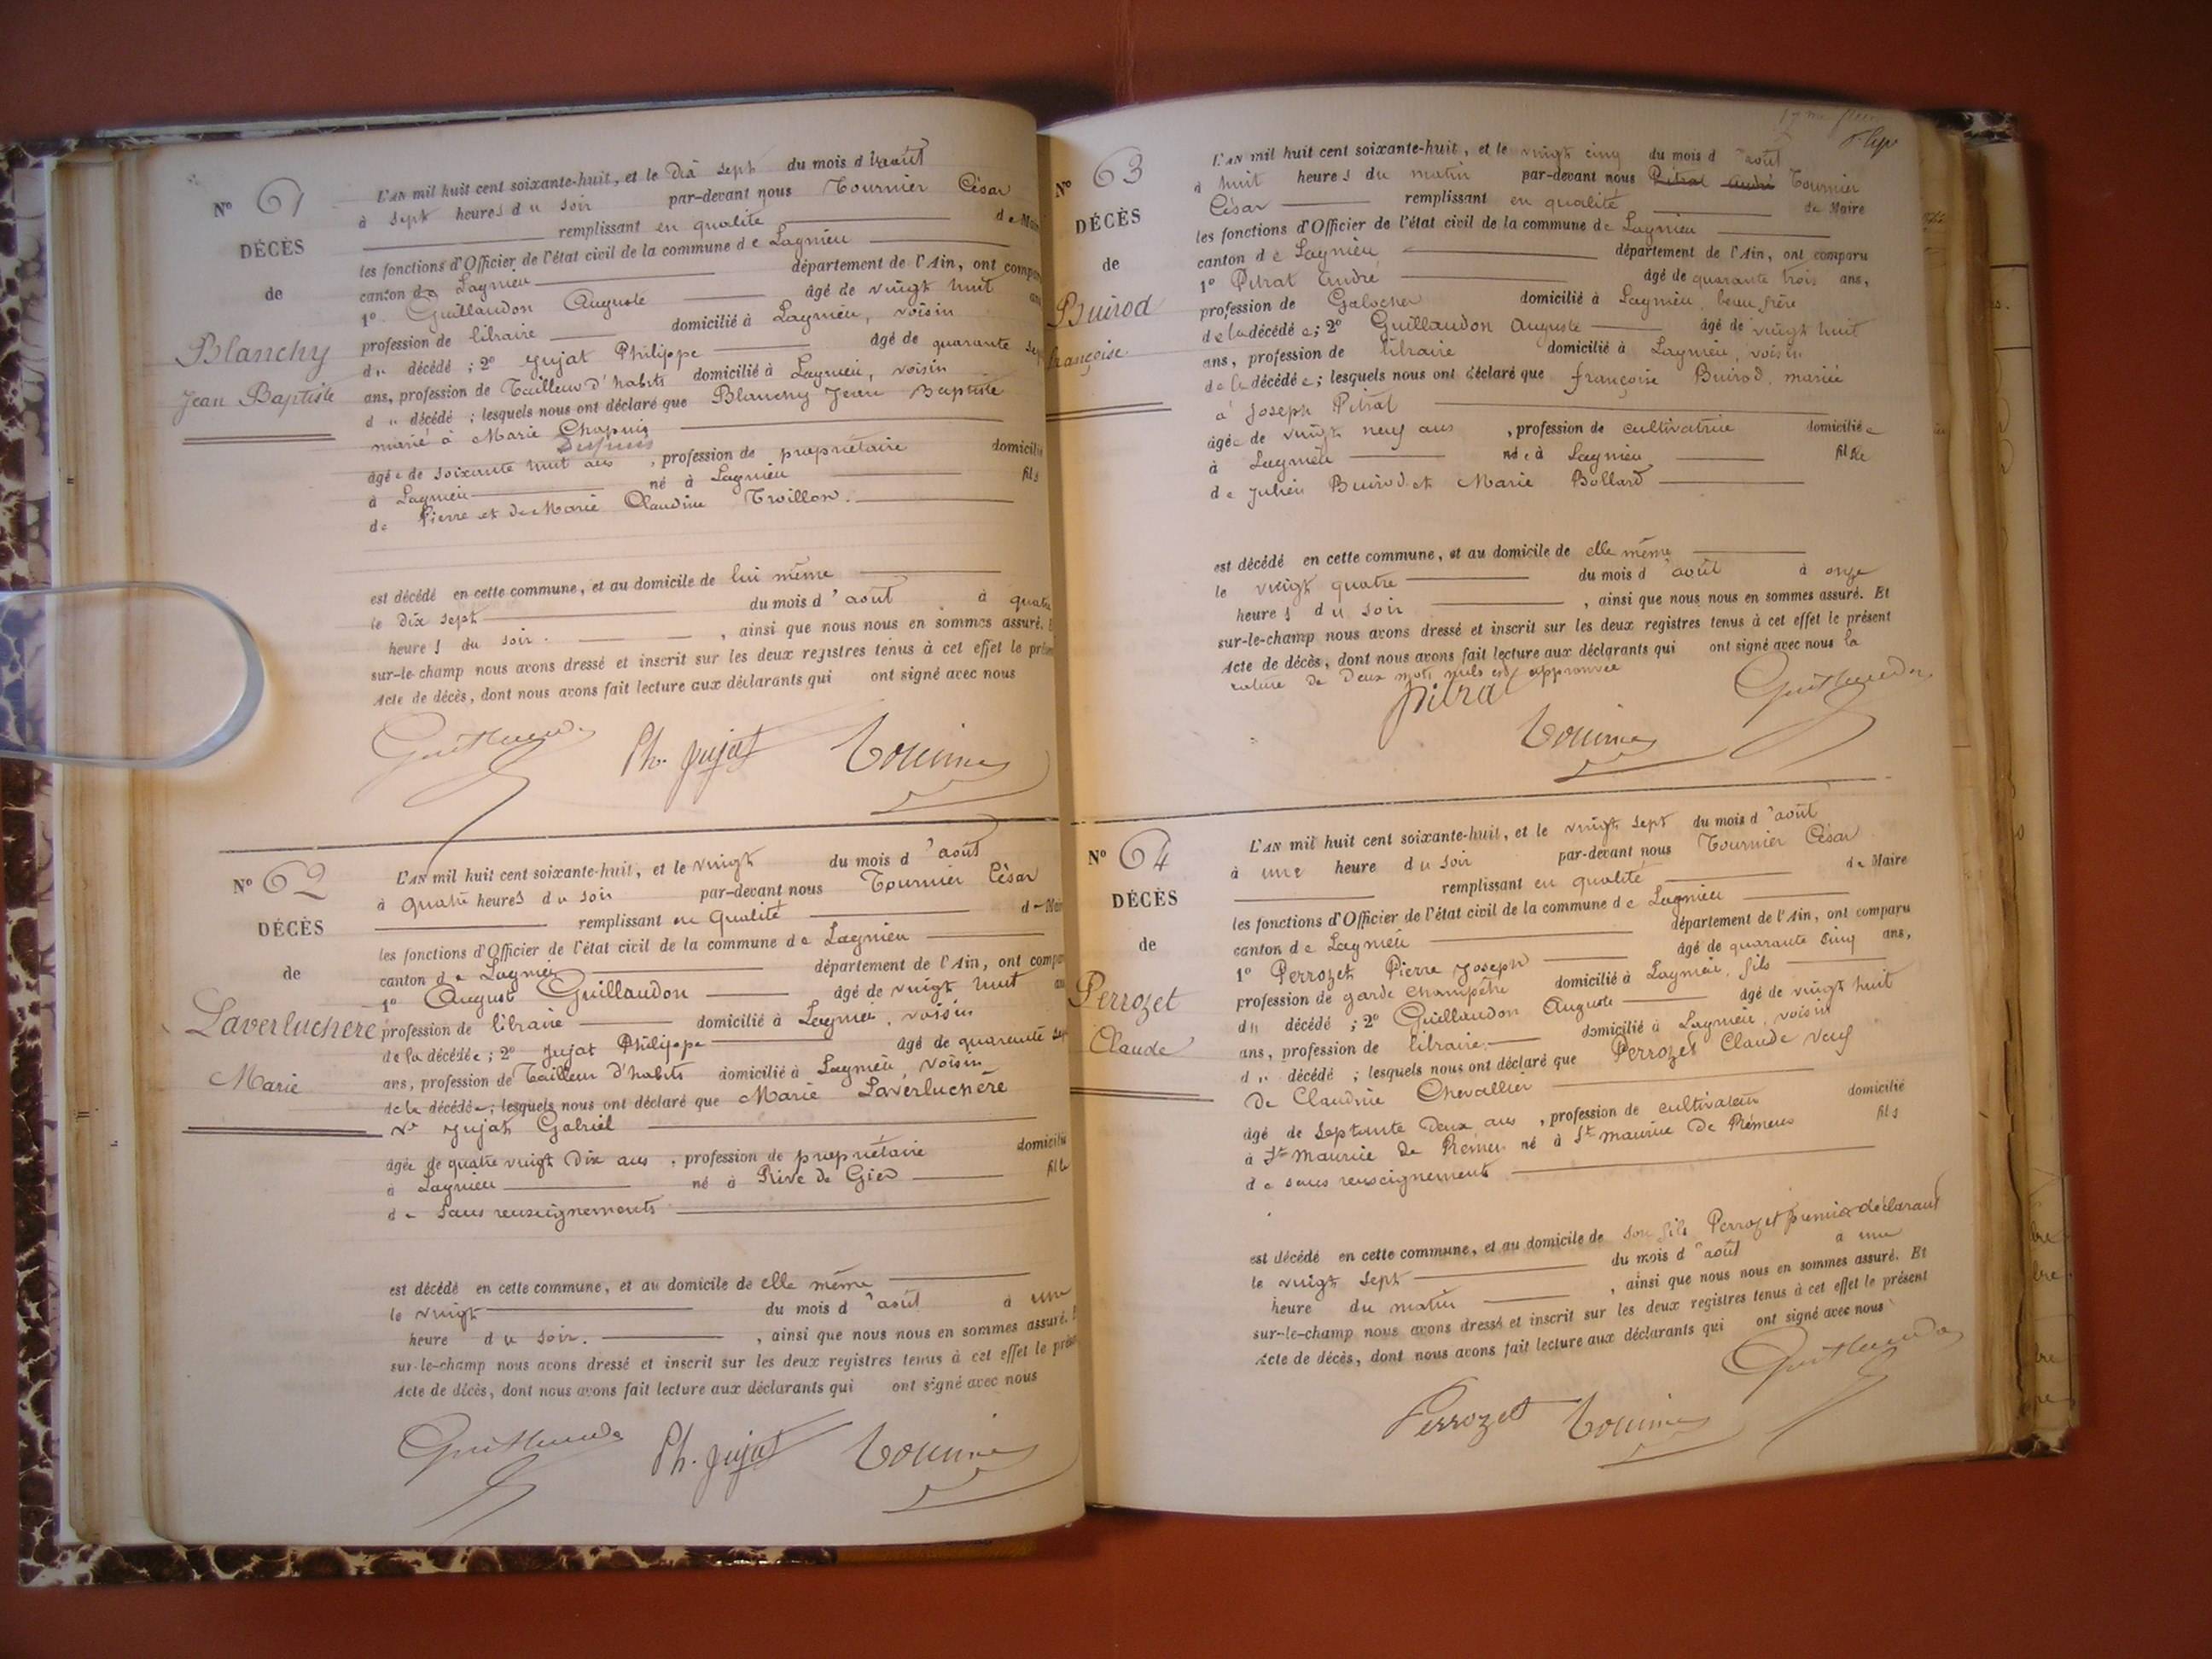 N° 61
DÉCÈS
de
Blanchy
Jean Baptiste
L'AN mil huit cent soixante-huit, et le Dix sept du mois d'août
à sept heures du soir par-devant nous Tournier César
remplissant en qualité de Mai
les fonctions d'Officier de l'état civil de la commune de Lagnieu
canton de Lagnieu département de l'Ain, ont compar
1° Guillaudon Auguste âgé de vingt huit ans
profession de libraire domicilié à Lagnieu, voisin
du décédé ; 2° Jujat Philippe âgé de quarante sep
ans, profession de Tailleur d'habits domicilié à Lagnieu, voisin
du décédé ; lesquels nous ont déclaré que Blanchy Jean Baptiste
marié à Marie Chapuis
âgé de soixante huit ans, profession de propriétaire domicilié
à Lagnieu né à Lagnieu fils
de Pierre et de Marie Claudine Troillon.
est décédé en cette commune, et au domicile de lui même
le dix sept du mois d'août à quatre
heures du soir. , ainsi que nous nous en sommes assuré. E
sur-le-champ nous avons dressé et inscrit sur les deux registres tenus à cet effet le prése
Acte de décès, dont nous avons fait lecture aux déclarants qui ont signé avec nous
Ph. Jujat Tournier
N° 62
DÉCÈS
de
Laverluchère
Marie
L'AN mil huit cent soixante-huit, et le vingt du mois d'août
à quatre heures du soir par-devant nous Tournier César
remplissant en qualité de Mair
les fonctions d'Officier de l'état civil de la commune de Lagnieu
canton de Lagnieu département de l'Ain, ont compar
1° August Guillaudon âgé de vingt huit an
profession de libraire domicilié à Lagnieu, voisin
de la décédée ; 2° Jujat Philippe âgé de quarante sep
ans, profession de Tailleur d'habits domicilié à Lagnieu, voisin
de la décédée ; lesquels nous ont déclaré que Marie Laverluchère
Ve Jujat Gabriel
âgée de quatre vingt Dix ans, profession de propriétaire domicilié
à Lagnieu né à Rive de Gier fille
de sans renseignements
est décédé en cette commune, et au domicile de elle même
le vingt du mois d'août à une
heure du soir. , ainsi que nous nous en sommes assuré. E
sur-le-champ nous avons dressé et inscrit sur les deux registres tenus à cet effet le prése
Acte de décès, dont nous avons fait lecture aux déclarants qui ont signé avec nous
Ph. Jujat Tournier
N° 63
DÉCÈS
de
Buirod
françoise
L'AN mil huit cent soixante-huit, et le vingt cinq du mois d'août
à huit heures du matin par-devant nous Pitrat André Tournier
César remplissant en qualité de Maire
les fonctions d'Officier de l'état civil de la commune de Lagnieu
canton de Lagnieu département de l'Ain, ont comparu
1° Pitrat André âgé de quarante trois ans,
profession de Galocher domicilié à Lagnieu, beau frère
de la décédée ; 2° Guillaudon Auguste âgé de vingt huit
ans, profession de libraire domicilié à Lagnieu, voisin
de la décédée ; lesquels nous ont déclaré que françoise Buirod, mariée
à Joseph Pitrat
âgée de vingt neuf ans, profession de cultivatrice domiciliée
à Lagnieu née à Lagnieu fille
de Julien Buirod et Marie Bollard
est décédé en cette commune, et au domicile de elle même
le vingt quatre du mois d'août à onze
heures du soir , ainsi que nous nous en sommes assuré. Et
sur-le-champ nous avons dressé et inscrit sur les deux registres tenus à cet effet le présent
Acte de décès, dont nous avons fait lecture aux déclarants qui ont signé avec nous la
rature de deux mots nuls est approuvée
Pitrat
Tournier
N° 64
DÉCÈS
de
Perrozet
Claude
L'AN mil huit cent soixante-huit, et le vingt sept du mois d'août
à une heure du soir par-devant nous Tournier César
remplissant en qualité de Maire
les fonctions d'Officier de l'état civil de la commune de Lagnieu
canton de Lagnieu département de l'Ain, ont comparu
1° Perrozet Pierre Joseph âgé de quarante cinq ans,
profession de garde champêtre domicilié à Lagnieu, fils
du décédé ; 2° Guillaudon Auguste âgé de vingt huit
ans, profession de libraire domicilié à Lagnieu, voisin
du décédé ; lesquels nous ont déclaré que Perrozet Claude veuf
De Claudine Chevallier
âgé de septante deux ans, profession de cultivateur domicilié
à St Maurice de Rémens né à St maurice De Rémens fils
de sans renseignements
est décédé en cette commune, et au domicile de son fils Perrozet premier déclarant
le vingt sept du mois d'août à une
heure du matin , ainsi que nous nous en sommes assuré. Et
sur-le-champ nous avons dressé et inscrit sur les deux registres tenus à cet effet le présent
Acte de décès, dont nous avons fait lecture aux déclarants qui ont signé avec nous
Perrozet Tournier